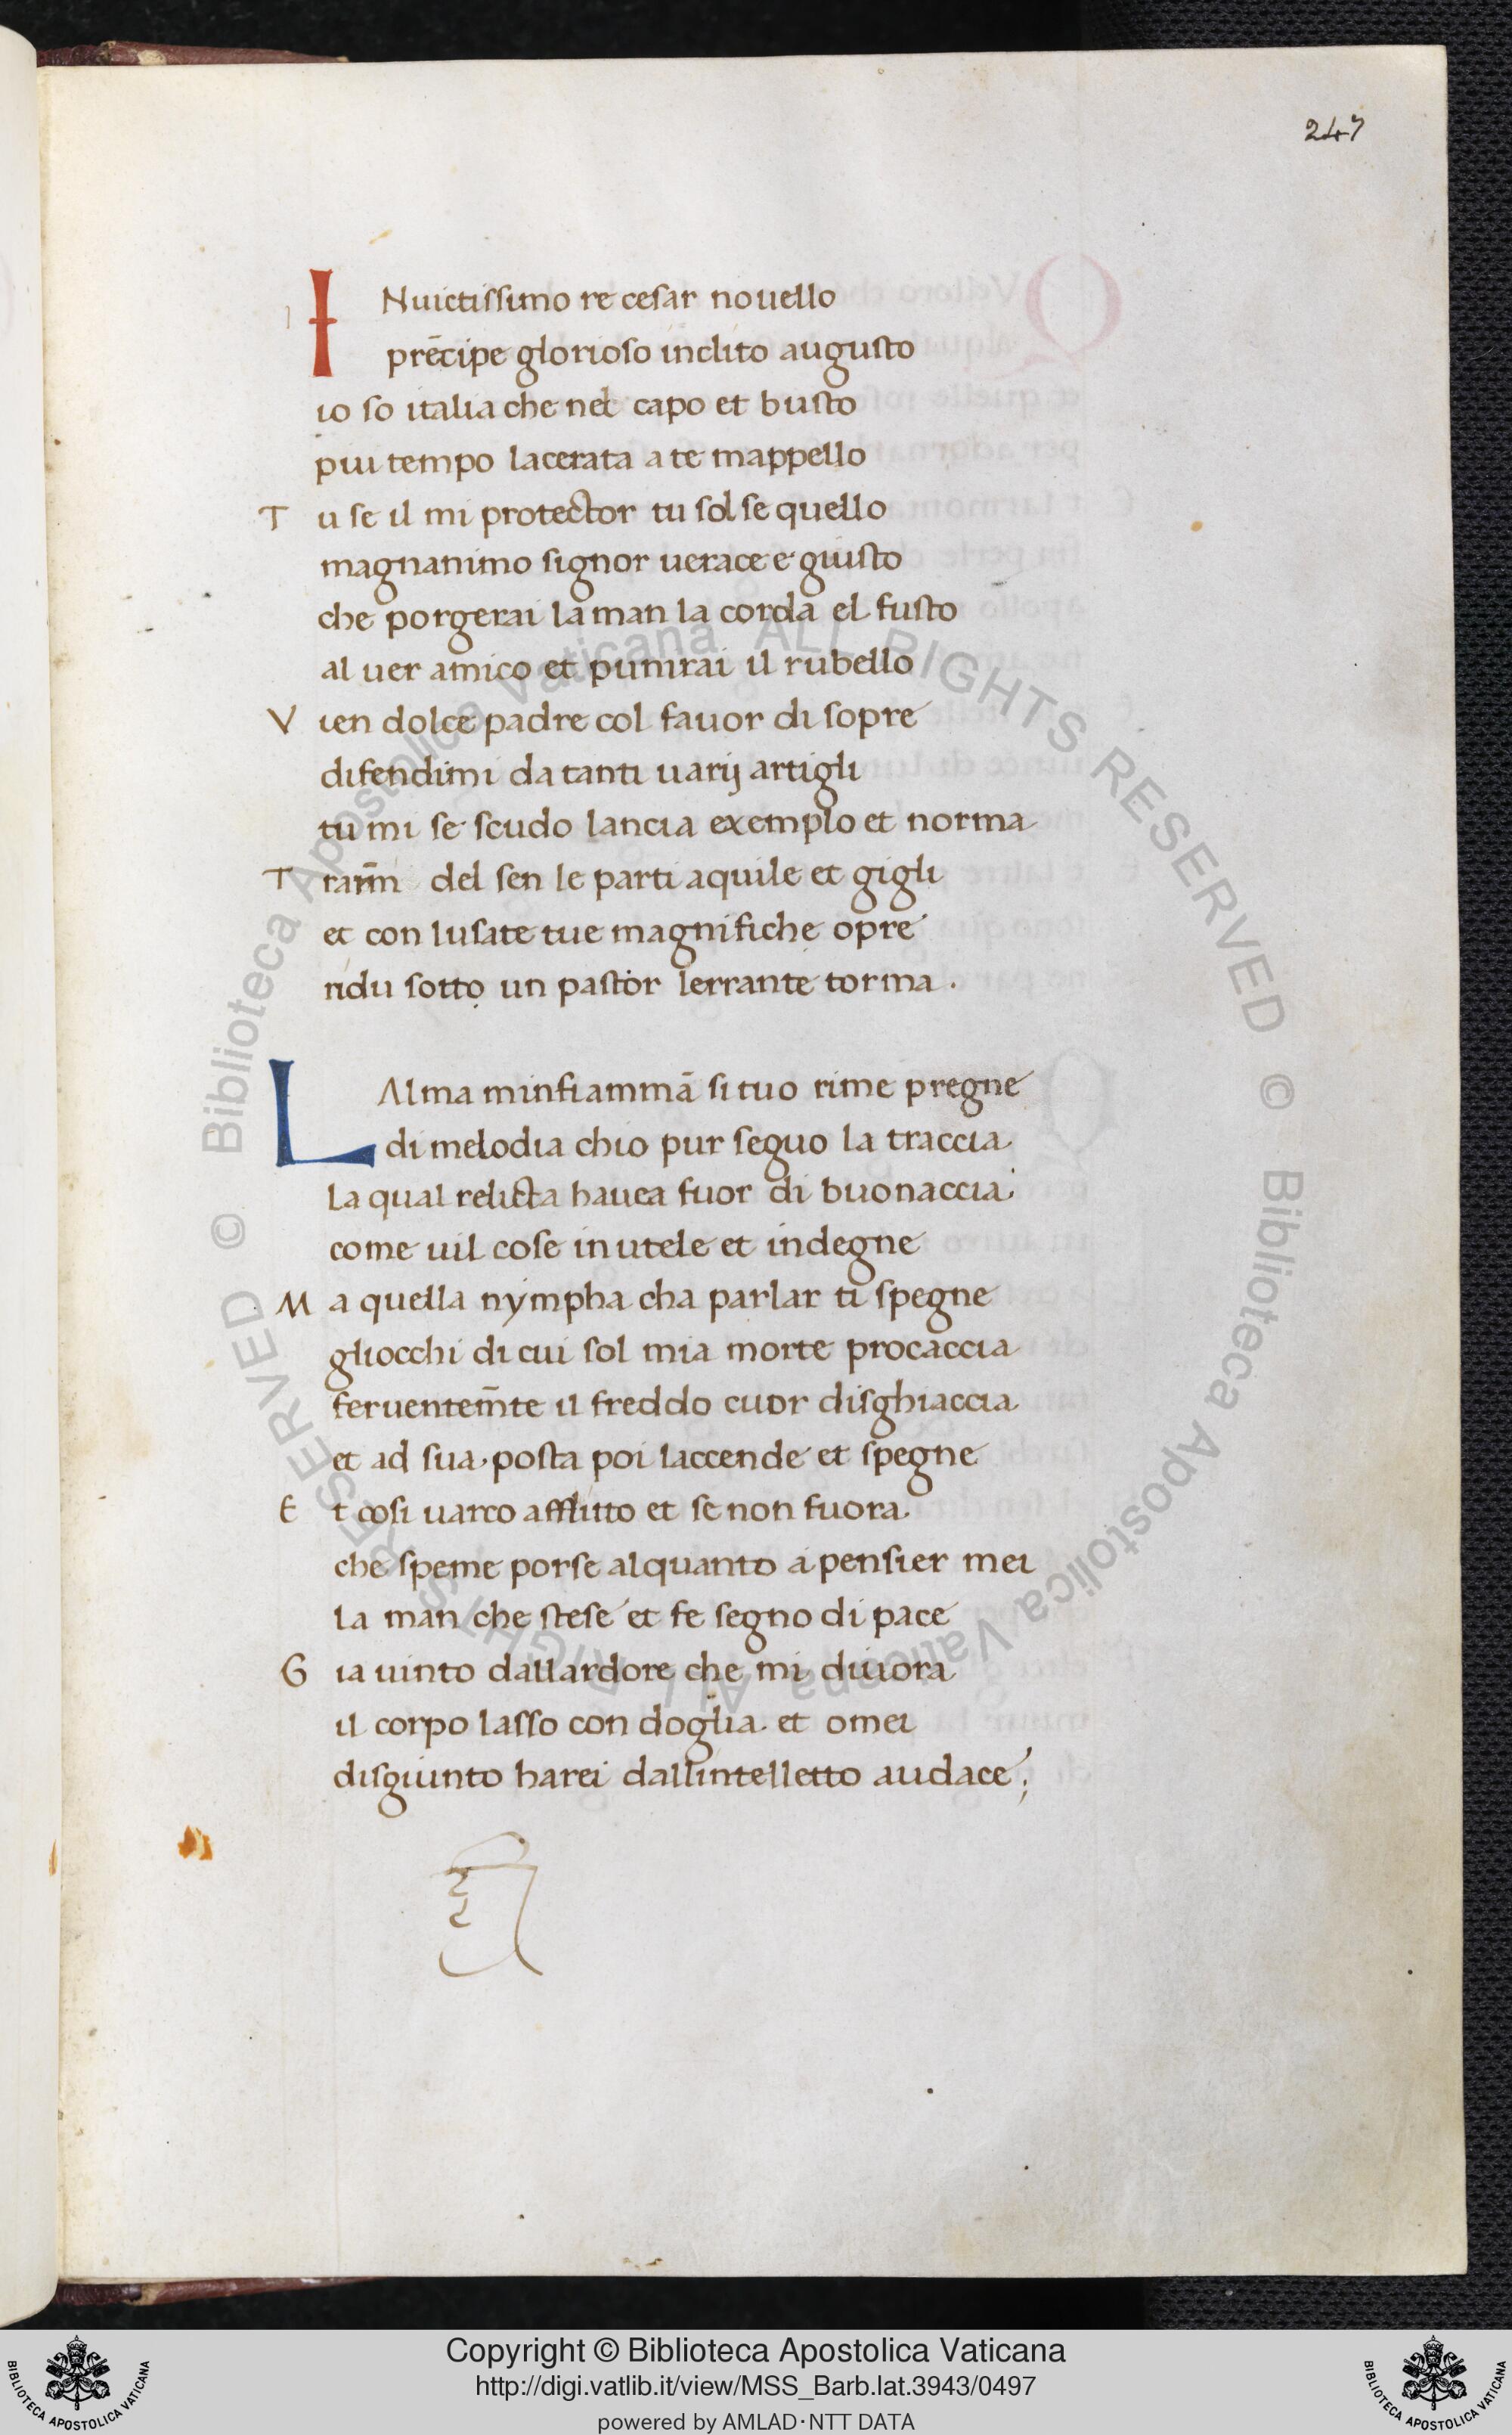 247
INuictissimo re cesar nouello
prēcipe glorioso inclito augusto
io so italia che nel capo et busto
piu tempo lacerata a te mappello
Tu se il mi protector tu sol se quello
magnanimo signor uerace e giusto
che porgerai la man la corda el fusto
al uer amico et punirai il rubello
Vien dolce padre col fauor di sopre
difendimi da tanti uarij artigli
tu mi se scudo lancia exemplo et norma
T del sen le parti aquile et gigli
et con lusate tue magnifiche opre
ridu sotto un pastor lerrante torma .
LAlma minfiammā si tuo rime pregne
di melodia chio pur seguo la traccia
la qual relicta hauea fuor di buonaccia
come uil cose inutele et indegne
Ma quella nympha cha parlar ti spegne
gliocchi di cui sol mia morte procaccia
feruentem̄te il freddo cuor disghiaccia
et ad sua posta poi laccende et spegne
Et cosi uarco afflitto et se non fuora
che speme porse alquanto a pensier mei
la man che stese et fe segno di pace
Gia uinto dallardore che mi diuora
il corpo lasso con doglia et omei
disgiunto harei dallintelletto audace ;
© Biblioteca Apostolica Vaticana ALL RIGHTS RESERVED © Biblioteca Apostolica Vaticana ALL RIGHTS RESERVED
Copyright © Biblioteca Apostolica Vaticana
http://digi.vatlib.it/view/MSS_Barb.lat.3943/0497
powered by AMLAD·NTT DATA
BIBLIOTECA APOSTOLICA VATICANA
BIBLIOTECA APOSTOLICA VATICANA